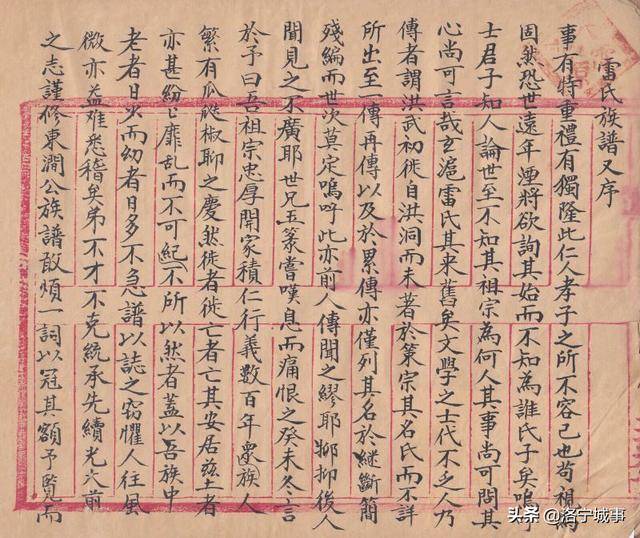 雷氏族譜又序
事有特重禮有獨隆此仁人孝子之所不容已也苟視為
固然恐世遠年湮將欲詢其始而不知為誰氏子矣嗚呼
士君子知人論世至不知其祖宗為何人其事尚可問其
心尚可言哉玄滬雷氏其来舊矣文學之士代不乏人乃
傳者謂洪武初徙自洪洞而未著於策宗其名氏而不詳
所出至一傳再傳以及於累傳亦僅列其名於継斷簡
殘編而世次莫定嗚呼此亦前人傳聞之繆耶抑抑後人
聞見之不廣耶世兄五策嘗嘆息而痛恨之癸未冬言
於予曰吾祖宗忠厚開家積仁行義數百年衆族人
繁有瓜瓞椒聊之慶然徙者徙亡者亡其安居玆土者
亦甚紛紛靡乱而不可紀不所以然者蓋以吾族中
老者日少而幼者日多不急譜以誌之窃懼人往風
微亦益难悉稽矣弟不才不克統承先緒光大前
之志謹修東澗公族譜敢煩一詞以冠其額予覧而
头条 @洛宁城事